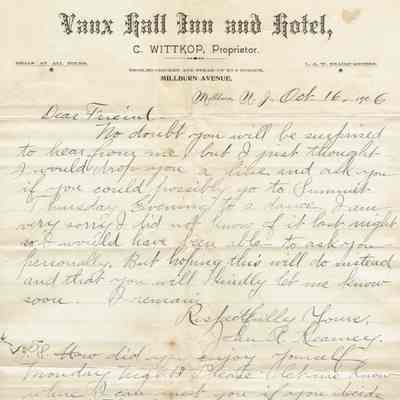 Vaux Hall Inn and Hotel,
C. WITTKOP, Proprietor.
MEALS AT ALL HOURS.
L. A. W. HEADQUARTERS.
MILLBURN AVENUE.
Millburn N. J. Oct. 16 - 1906
Dear Friend -
No doubt you will be surprised
to hear from me, but I just thought
I would drop you a line and ask you
if you could possibly go to Summit
Thursday Evening to a dance. I am
very sorry I did not know of it last night
so I would have been able to ask you
personally. But hoping this will do instead
and that you will kindly let me know
soon. I remain
Respectfully Yours,
John R. Kearney.
P.S. How did you enjoy yourself
Monday night? Please let me know
where I can meet you if you decide